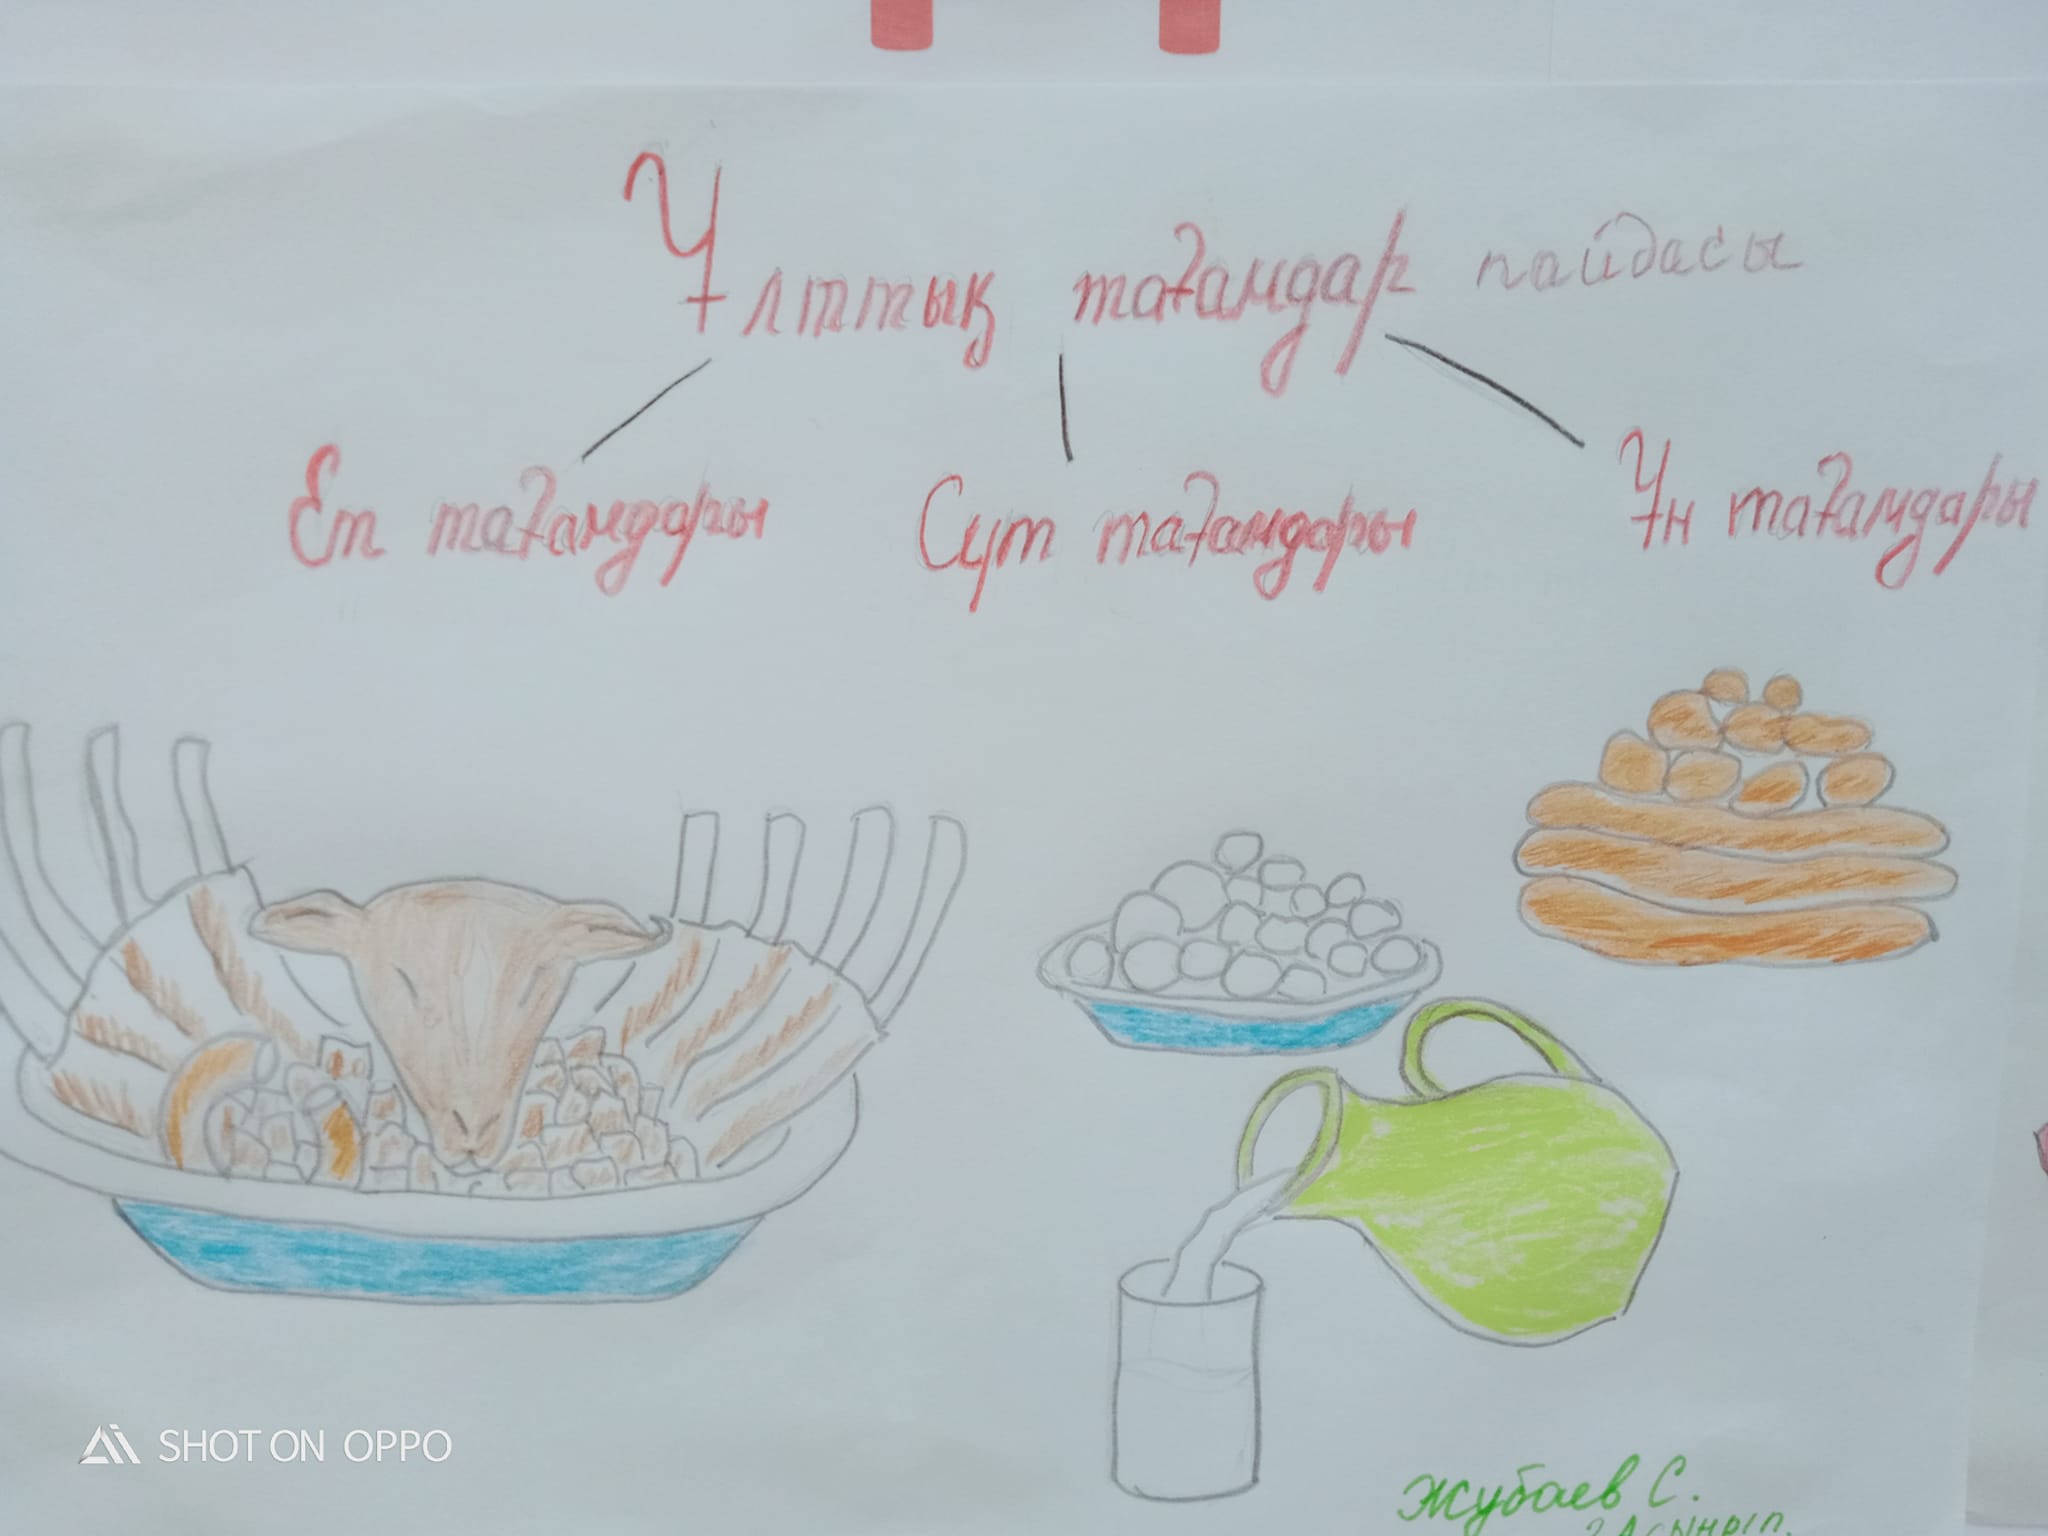 Ұлттық тағамдар пайдасы
Ет тағамдары Сүт тағамдары Ұн тағамдары
SHOT ON OPPO
Жубаев С.